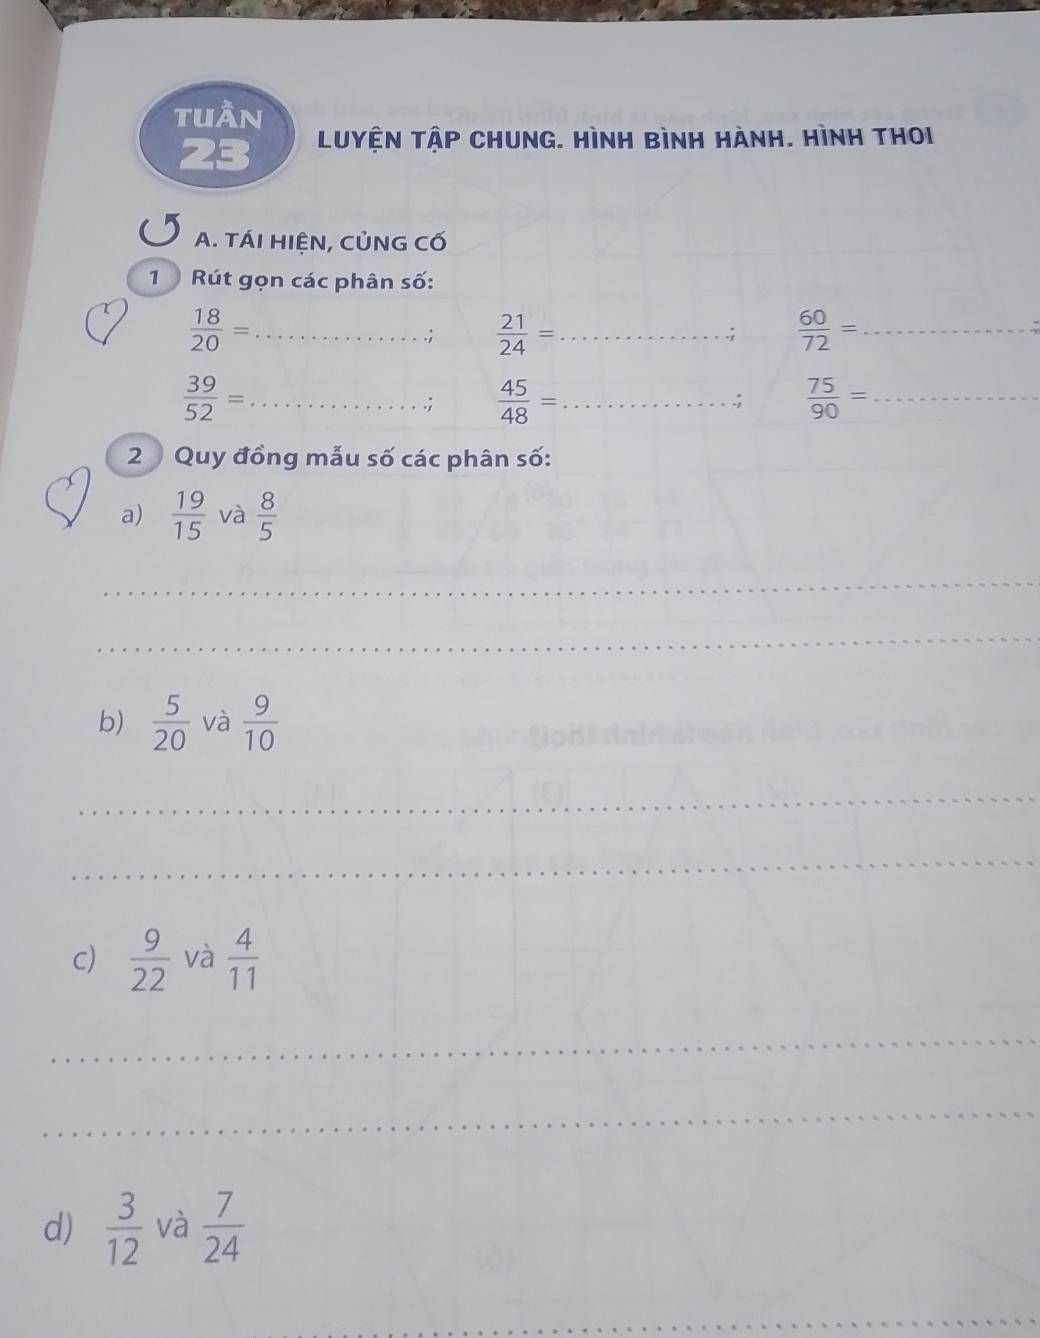 TUẦN
23
LUYỆN TẬP CHUNG. HÌNH BÌNH HÀNH. HÌNH THOI
A. TÁI HIỆN, CỦNG CỐ
1 Rút gọn các phân số:
18/20 = ...............; 21/24 = ...............; 60/72 = ...............;
39/52 = ...............; 45/48 = ...............; 75/90 = ...............
2 Quy đồng mẫu số các phân số:
a) 19/15 và 8/5
b) 5/20 và 9/10
c) 9/22 và 4/11
d) 3/12 và 7/24